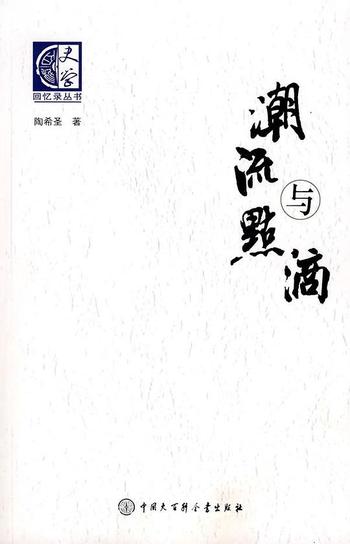 史学
回忆录丛书
陶希圣 著
潮流
与
點滴
中国大百科全书出版社